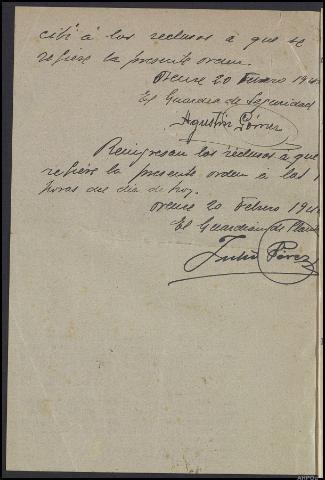 cibí á los reclusos á que se
refiere la presente orden.
Orense 20 Febrero 194
El Guardia de Seguridad
Agustín Gómez
Reingresan los reclusos á que
refiere la presente orden á las 1
horas del día de hoy.
Orense 20 Febrero 194
El Guardian de Planta
Julio Pérez